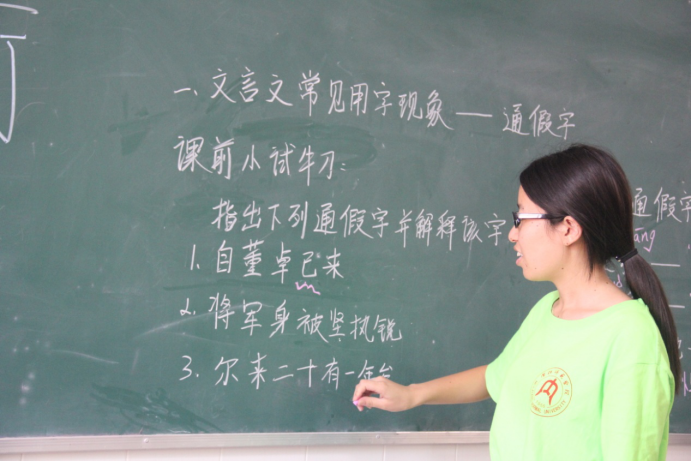 一.文言文常见用字现象——通假字
课前小试牛刀:
指出下列通假字并解释该字
1.自董卓已来
2.将军身被坚执锐
3.尔来二十有一年
通假字
ang